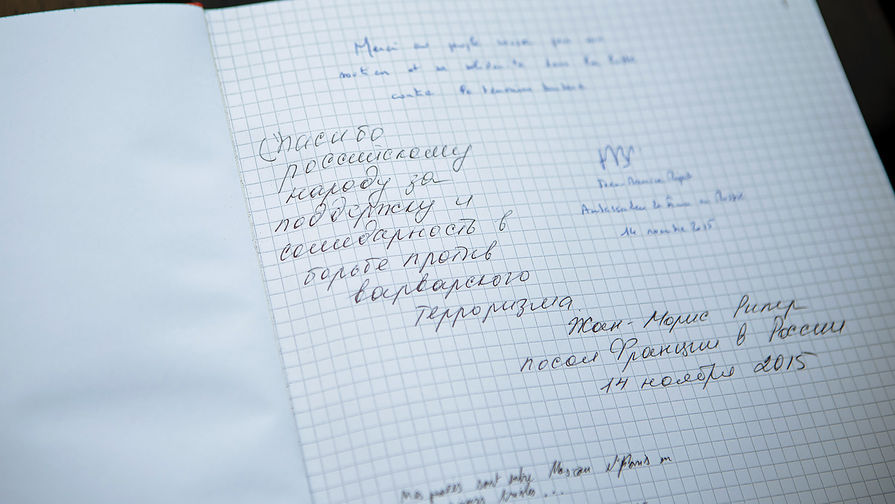 Merci au peuple russe pour son
soutien et sa solidarité dans la lutte
contre le terrorisme barbare
Спасибо
российскому
народу за
поддержку и
солидарность в
борьбе против
варварского
терроризма
Jean-Maurice Ripert
Ambassadeur de France en Russie
14 novembre 2015
Жан-Морис Рипер
посол Франции в России
14 ноября 2015
Nos pensées sont entre Moscou et Paris en